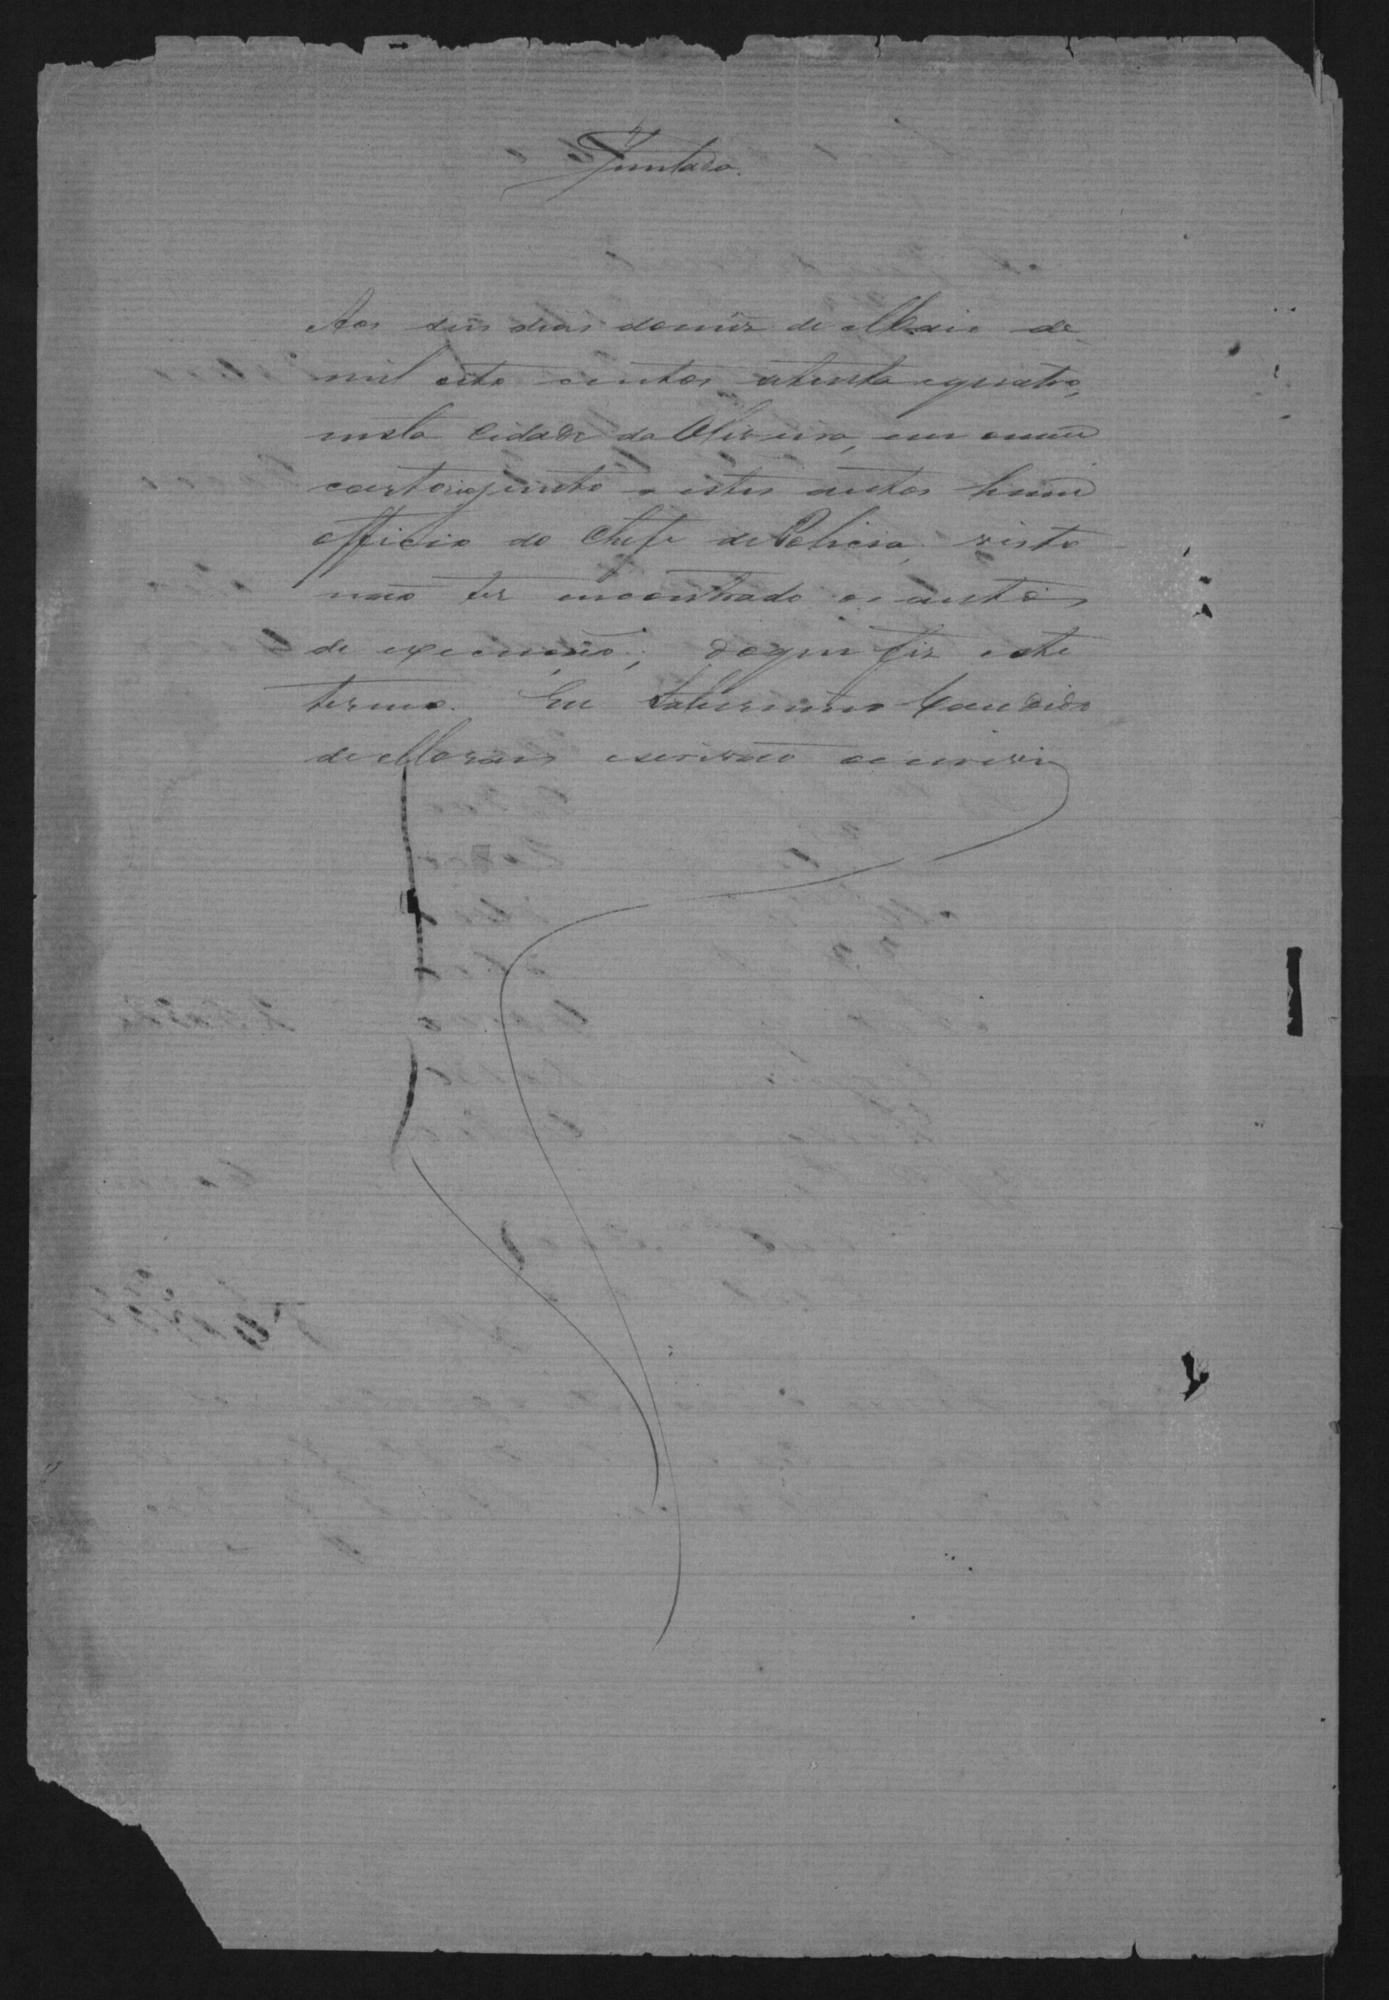 Juntada.
Aos seis dias domez de Maio de
mil oito centos oitenta equatro,
nesta Cidade da Oliveira, em omeu
cartoriojunto a estes autos hum
officio do Chefe de Policia, visto
não ter encontrado os autos
de execução; doque fiz este
termo. Eu Saturnino Candido
de Moraes escrivão oescrevi